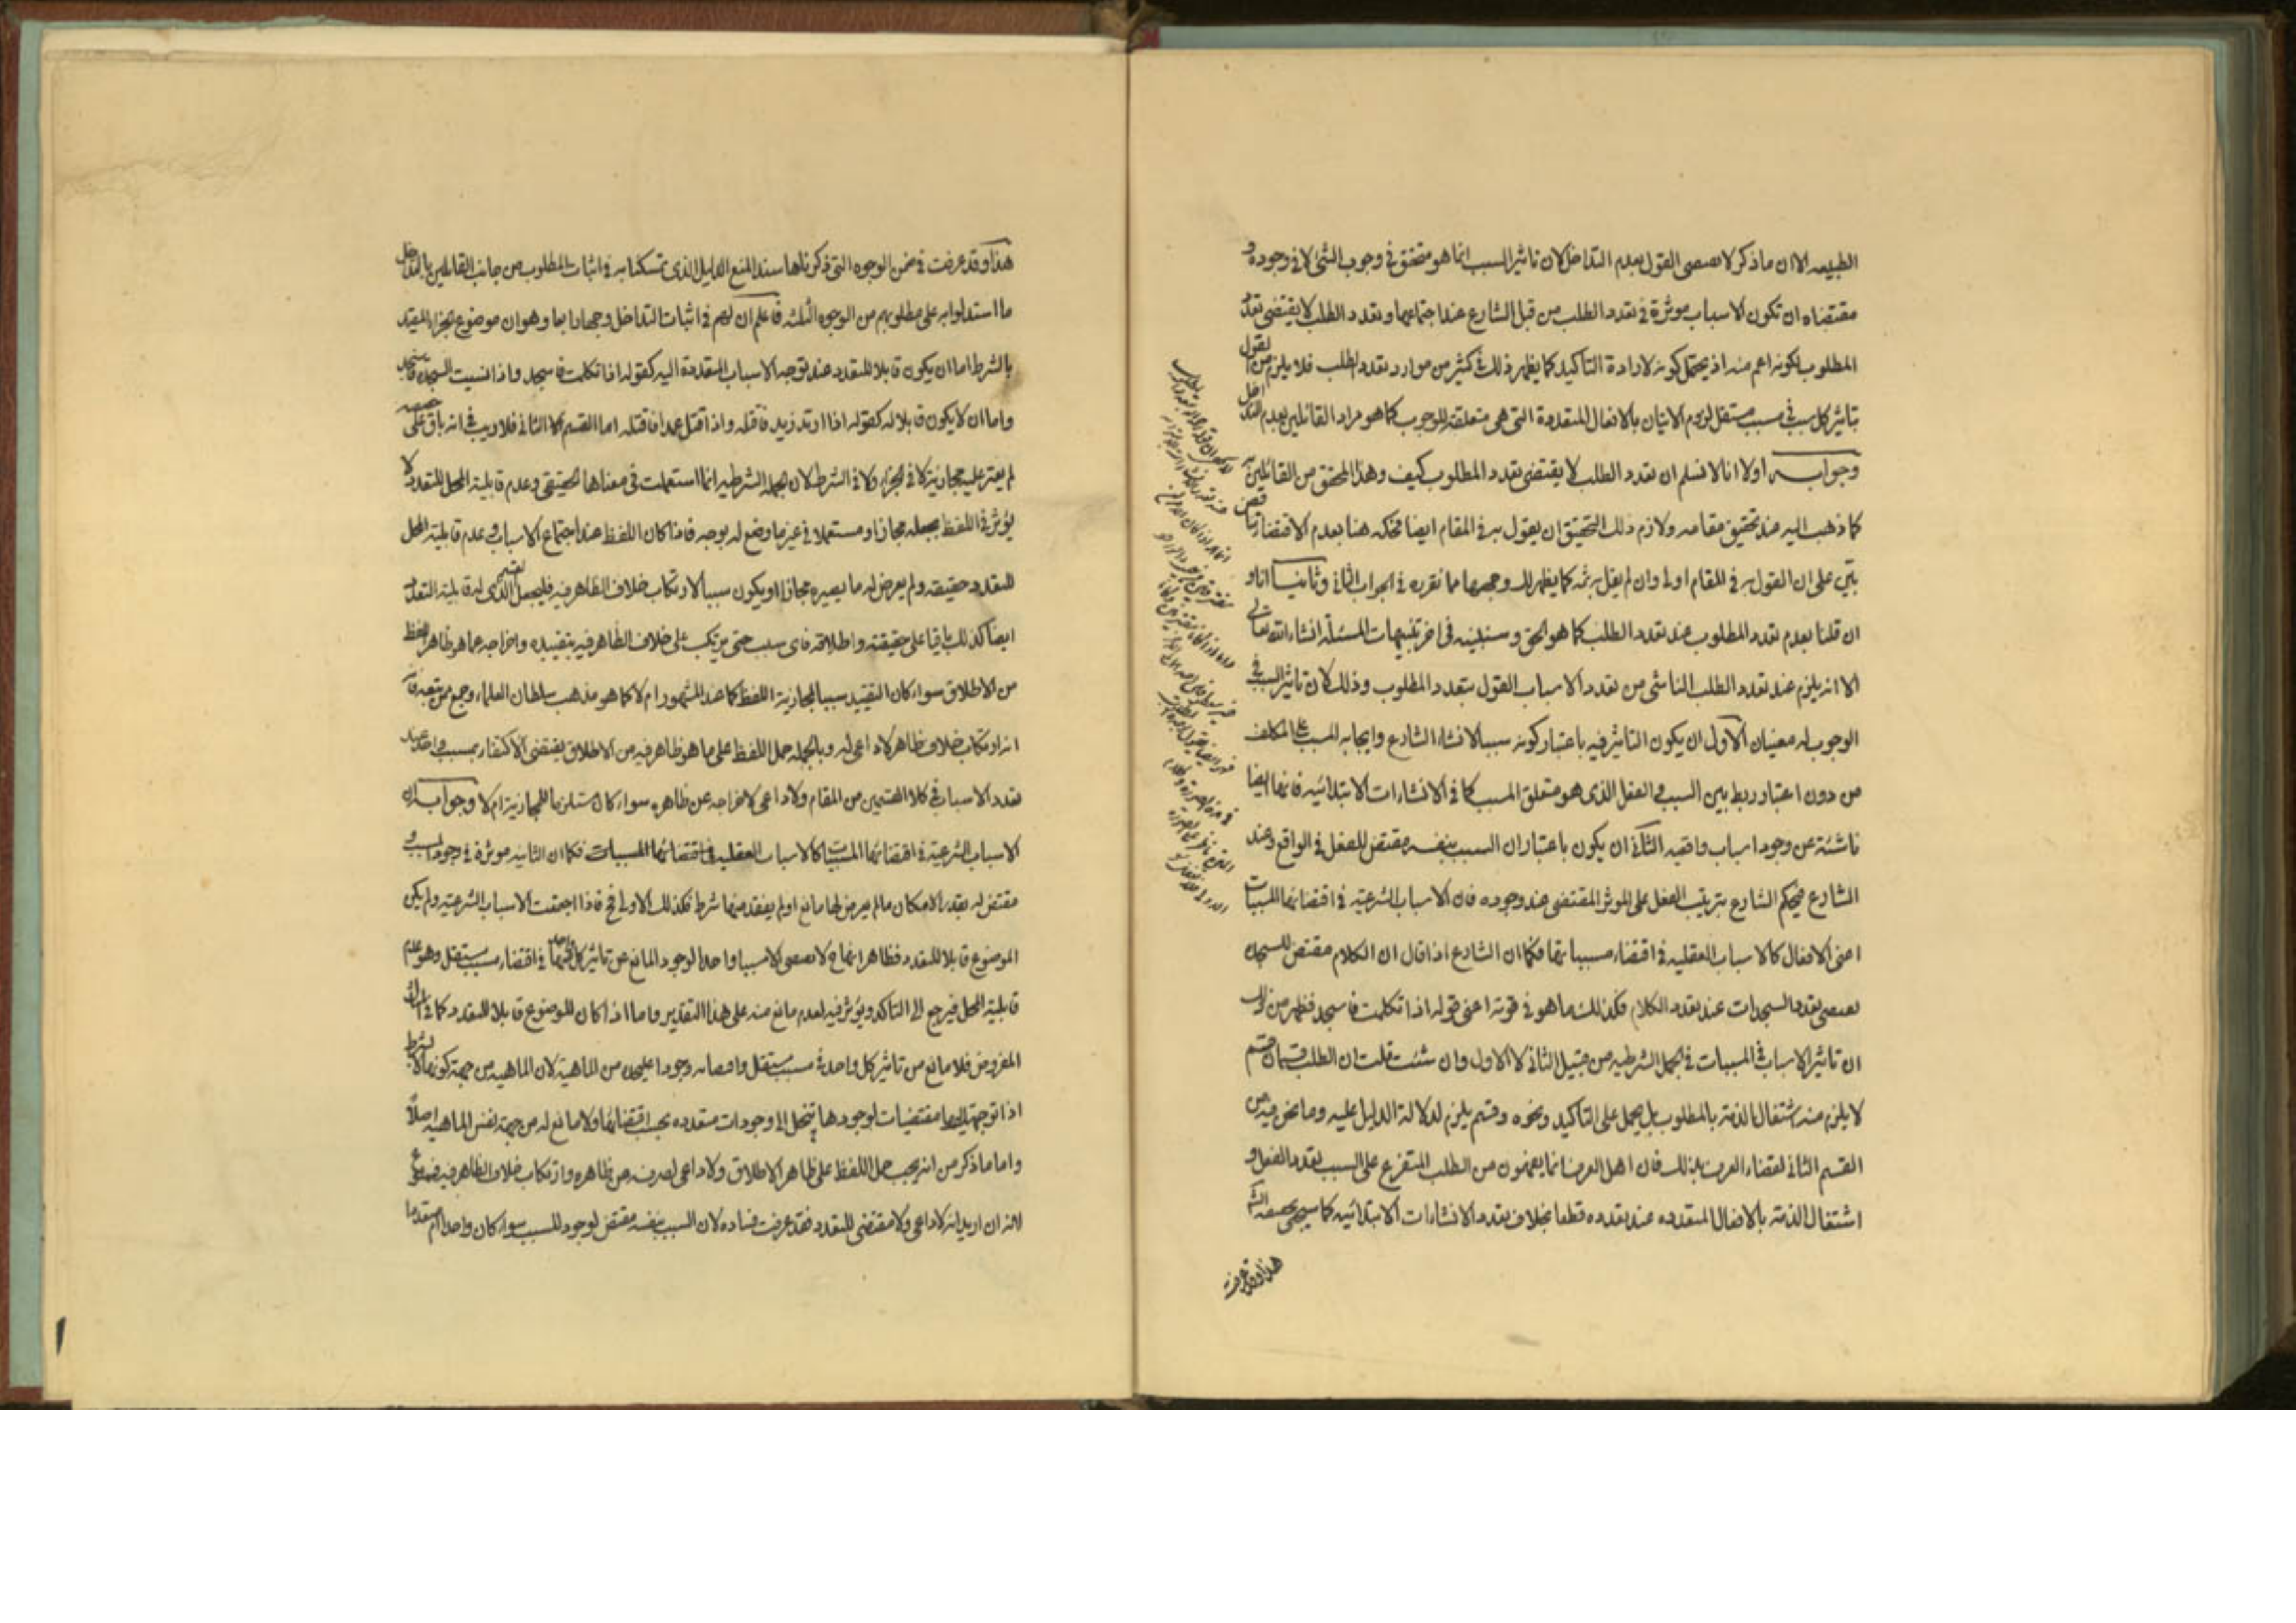 الطبيعه الا ان ماذكر لا يقتضى القول بعدم التداخل لان تاثير السبب انما هو متحقق فى وجوب الشئ لا فى وجوده و
مقتضاه ان تكون الاسباب موثرة فى تعدد الطلب من قبل الشارع عند اجتماعها وتعدد الطلب لا يقتضى تعدد
المطلوب لكونه اعم منه اذ يحتمل كونه لارادة التاكيد كما يظهر ذلك فى كثير من موارد تعدد الطلب فلا يلزم من القول
بتاثير كل سبب فى مسبب مستقل لزوم الاتيان بالافعال المتعددة التى هى متعلقة للوجوب كما هو مراد القائلين بعدم التداخل
وجوابه اولا انا لا نسلم ان تعدد الطلب لا يقتضى تعدد المطلوب كيف وهذا المحقق من القائلين به
كما ذهب اليه عند تحقيق مقامه ولازم ذلك التحقيق ان يقول به فى المقام ايضا فحكمه هنا بعدم الاقتضاء تناقض
بيّن على ان القول به فى المقام اولى وان لم يقل به ثمه كما يظهر لك وجهها مما نقرره فى الجواب الثانى وثانيا انا و
ان قلنا بعدم تعدد المطلوب عند تعدد الطلب كما هو الحق وسنبينه فى اخر تنبيهات المسئلة انشاء الله تعالى
الا انه يلزم عند تعدد الطلب الناشى من تعدد الاسباب القول بتعدد المطلوب وذلك لان تاثير السبب فى
الوجوب له معنيان الاول ان يكون التاثير فيه باعتبار كونه سببا لانشاء الشارع وايجابه المسبب على المكلف
من دون اعتبار ربط بين السبب و الفعل الذى هو متعلق المسبب كما فى الانشاءات الابتدائيه فانها ايضا
ناشئة عن وجود اسباب واقعيه الثانى ان يكون باعتبار ان السبب بنفسه مقتض للفعل فى الواقع وعند
الشارع فيحكم الشارع بترتيب الفعل على الموثر المقتضى عند وجوده فان الاسباب الشرعيه فى اقتضائها المسببات
اعنى الافعال كالاسباب العقليه فى اقتضاء مسبباتها فكما ان الشارع اذا قال ان الكلام مقتض للسجده
يقتضى تعدد السجدات عند تعدد الكلام فكذلك ما هو فى قوته اعنى قوله اذا تكلمت فاسجد فظهر من ذلك
ان تاثير الاسباب فى المسببات فى الجمل الشرطيه من قبيل الثانى لا الاول وان شئت قلت ان الطلب قسمان قسم
لا يلزم منه اشتغال الذمة بالمطلوب بل يحمل على التاكيد ونحوه وقسم يلزم لدلالة الدليل عليه وما نحن فيه من
القسم الثانى لقضاء العرف بذلك فان اهل العرف انما يفهمون من الطلب المتفرع على السبب تعدد الفعل و
اشتغال الذمة بالافعال المتعدده عند تعدده قطعا بخلاف تعدد الانشاءات الابتدائيه كما سيجى
هذا وقد عرفت
هذا وقد عرفت فى ضمن الوجوه التى ذكرناها سند المنع الدليل الذى تمسكنا به فى اثبات المطلوب من جانب القائلين بالتداخل
ما استدلوا به على مطلوبهم من الوجوه الثلثه فاعلم ان لهم فى اثبات التداخل وجها رابعا وهو ان موضوع الجزاء المقيد
بالشرط اما ان يكون قابلا للتعدد عند توجه الاسباب المتعددة اليه كقوله اذا تكلمت فاسجد واذا نسيت السجده فاسجد
واما ان لا يكون قابلا له كقوله اذا ارتد زيد فاقتله واذا قتل عمدا فاقتله اما القسم الثانى فلا ريب فى انه باق على حقيقته
لم يعتر عليه مجازية لا فى الجزاء ولا فى الشرط لان الجمله الشرطيه انما استعملت فى معناها الحقيقى وعدم قابلية المحل للتعدد لا
يؤثر فى اللفظ بجعله مجازا ومستعملا فى غير ما وضع له بوجه فاذا كان اللفظ عند اجتماع الاسباب فى عدم قابلية المحل
للتعدد حقيقه ولم يعرض له ما يصيره مجازا او يكون سببا لارتكاب خلاف الظاهر فيه فليجعل القسم الذى له قابلية التعدد
ايضا كذلك باقيا على حقيقته واطلاقه فاى سبب حتى يرتكب على خلاف الظاهر فيه بتقييده واخراجه عما هو ظاهر اللفظ
من الاطلاق سواء كان التقييد سببا لمجازية اللفظ كما عند المشهور ام لا كما هو مذهب سلطان العلماء وجمع من تبعه فان
انه ارتكاب خلاف ظاهر لا داعى له وبالجمله حمل اللفظ على ما هو ظاهر فيه من الاطلاق يقتضى الاكتفاء بمسبب واحد عند
تعدد الاسباب فى كلا القسمين من المقام ولا داعى لاخراجه عن ظاهره سواء كان مستلزما للمجازية ام لا وجوابه ان
الاسباب الشرعية فى اقتضائها المسببات كالاسباب العقليه فى اقتضائها المسببات فكما ان الثانيه موثرة فى وجود المسبب و
مقتض له بقدر الامكان مالم يعرض لها مانع او لم يفقد منها شرط فكذلك الاولى فح فاذا اجتمعت الاسباب الشرعيه ولم يكن
الموضوع قابلا للتعدد فظاهر انها ح لا يقتضى الا مسببا واحدا لوجود المانع عن تاثير كل منها فى اقتضاء مسبب مستقل وهو عدم
قابلية المحل فيرجع الى التاكد ويؤثر فيه لعدم مانع منه على هذا التقدير واما اذا كان الموضوع قابلا للتعدد كما فى
المفروض فلا مانع من تاثير كل واحد فى مسبب مستقل واقتضائه وجودا عليحده من الماهية لان الماهيه من جهة كونها لا بشرط
اذا توجهت اليها مقتضيات لوجودها تنحل الى وجودات متعدده بحسب اقتضائها ولا مانع له من جهة نفس الماهيه اصلا
واما ما ذكر من انه يجب حمل اللفظ على ظاهر الاطلاق ولا داعى لصرفه عن ظاهره وارتكاب خلاف الظاهر فيه فمدفوع
لانه ان اريد انه لا داعى ولا مقتضى للتعدد فقد عرفت فساده لان السبب بنفسه مقتض لوجود المسبب سواء كان واحدا ام متعددا